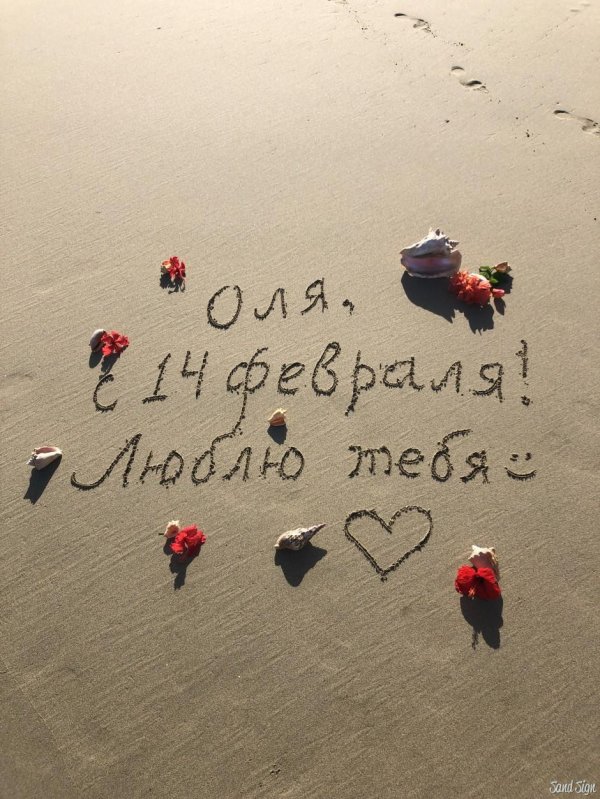 Оля,
с 14 февраля!
Люблю тебя :)
Sand Sign